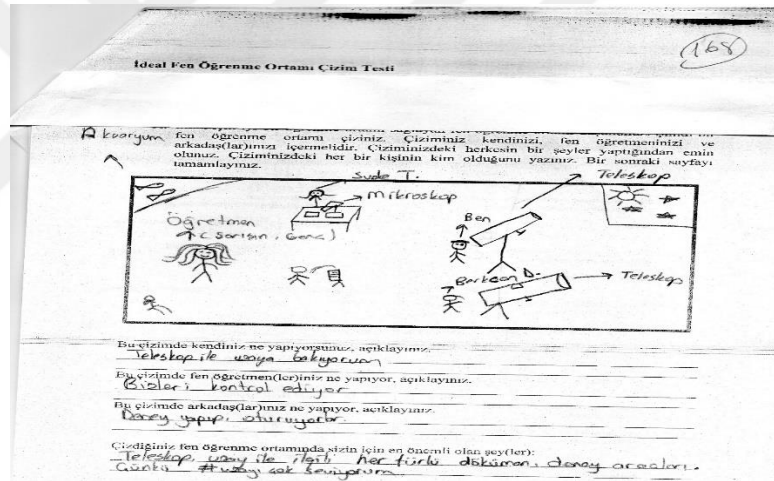 168
İdeal Fen Öğrenme Ortamı Çizim Testi
fen öğrenme ortamı çiziniz. Çiziminiz kendinizi, fen öğretmeninizi ve
arkadaş(lar)ınızı içermelidir. Çiziminizdeki herkesin bir şeyler yaptığından emin
olunuz. Çiziminizdeki her bir kişinin kim olduğunu yazınız. Bir sonraki sayfayı
tamamlayınız.
Akvaryum
Sude T.
Teleskop
mikroskop
Öğretmen
(Sarışın, Genç)
Ben
Berkcan D.
Teleskop
Bu çizimde kendiniz ne yapıyorsunuz, açıklayınız.
Teleskop ile uzaya bakıyorum
Bu çizimde fen öğretmen(ler)iniz ne yapıyor, açıklayınız.
Bizleri kontrol ediyor
Bu çizimde arkadaş(lar)ınız ne yapıyor, açıklayınız.
Deney yapıp, oturuyorlar.
Çizdiğiniz fen öğrenme ortamında sizin için en önemli olan şey(ler):
Teleskop, uzay ile ilgili her türlü döküman, deney araçları.
Çünkü uzayı çok seviyorum